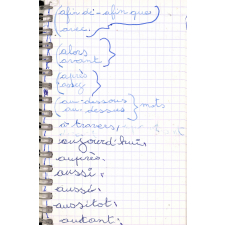 (afin de - afin que)
avec.
(alors
avant)
(après
assez)
(au-dessous
au-dessus) mots
à travers,
aujourd'hui.
auprès.
aussi.
aussi.
aussitôt.
autant.